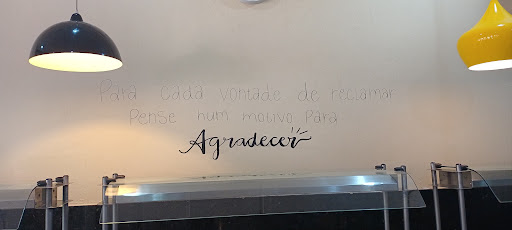 Para cada vontade de reclamar
Pense num motivo para
Agradecer